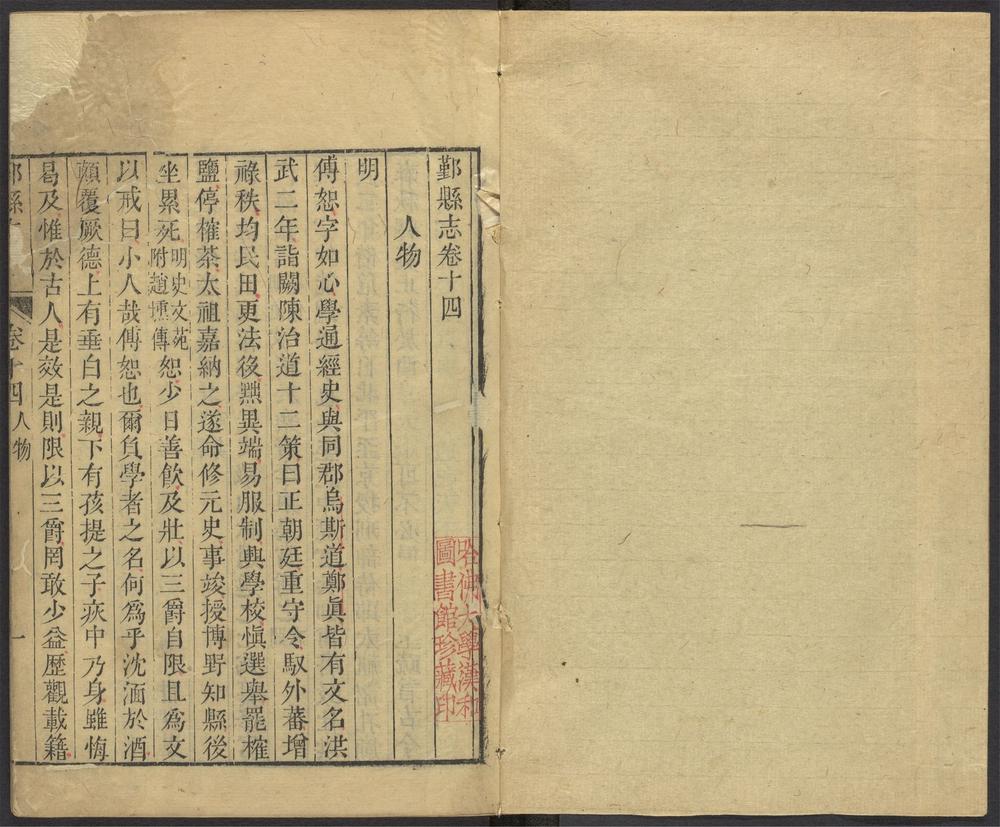 鄞縣志卷十四
人物
明
傅恕字如心學通經史與同郡烏斯道鄭眞皆有文名洪
武二年詣闕陳治道十二策曰正朝廷重守令馭外蕃增
祿秩均民田更法後黜異端易服制興學校愼選舉罷榷
鹽停榷茶太祖嘉納之遂命修元史事竣授博野知縣後
坐累死明史文苑附趙壎傳恕少日善飮及壯以三爵自限且爲文
以戒曰小人哉傅恕也爾負學者之名何爲乎沈湎於酒
顚覆厥德上有垂白之親下有孩提之子疢中乃身雖悔
曷及惟於古人是效是則限以三爵罔敢少益歷觀載籍
卷十四人物
一
哈佛大學漢和
圖書館珍藏印